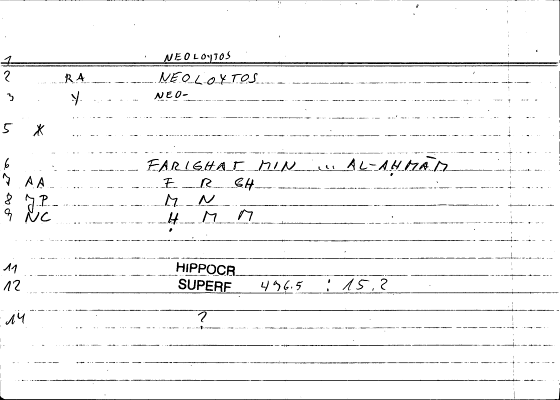 1 NEOLOYTOS
2 RA NEOLOYTOS
3 Y NEO-
5 *
6 FARIGHAT MIN ... AL-AḤMĀM
7 AA F R GH
8 JP M N
9 NC Ḥ M M
11 HIPPOCR
12 SUPERF 476.5 : 15.2
14 ?